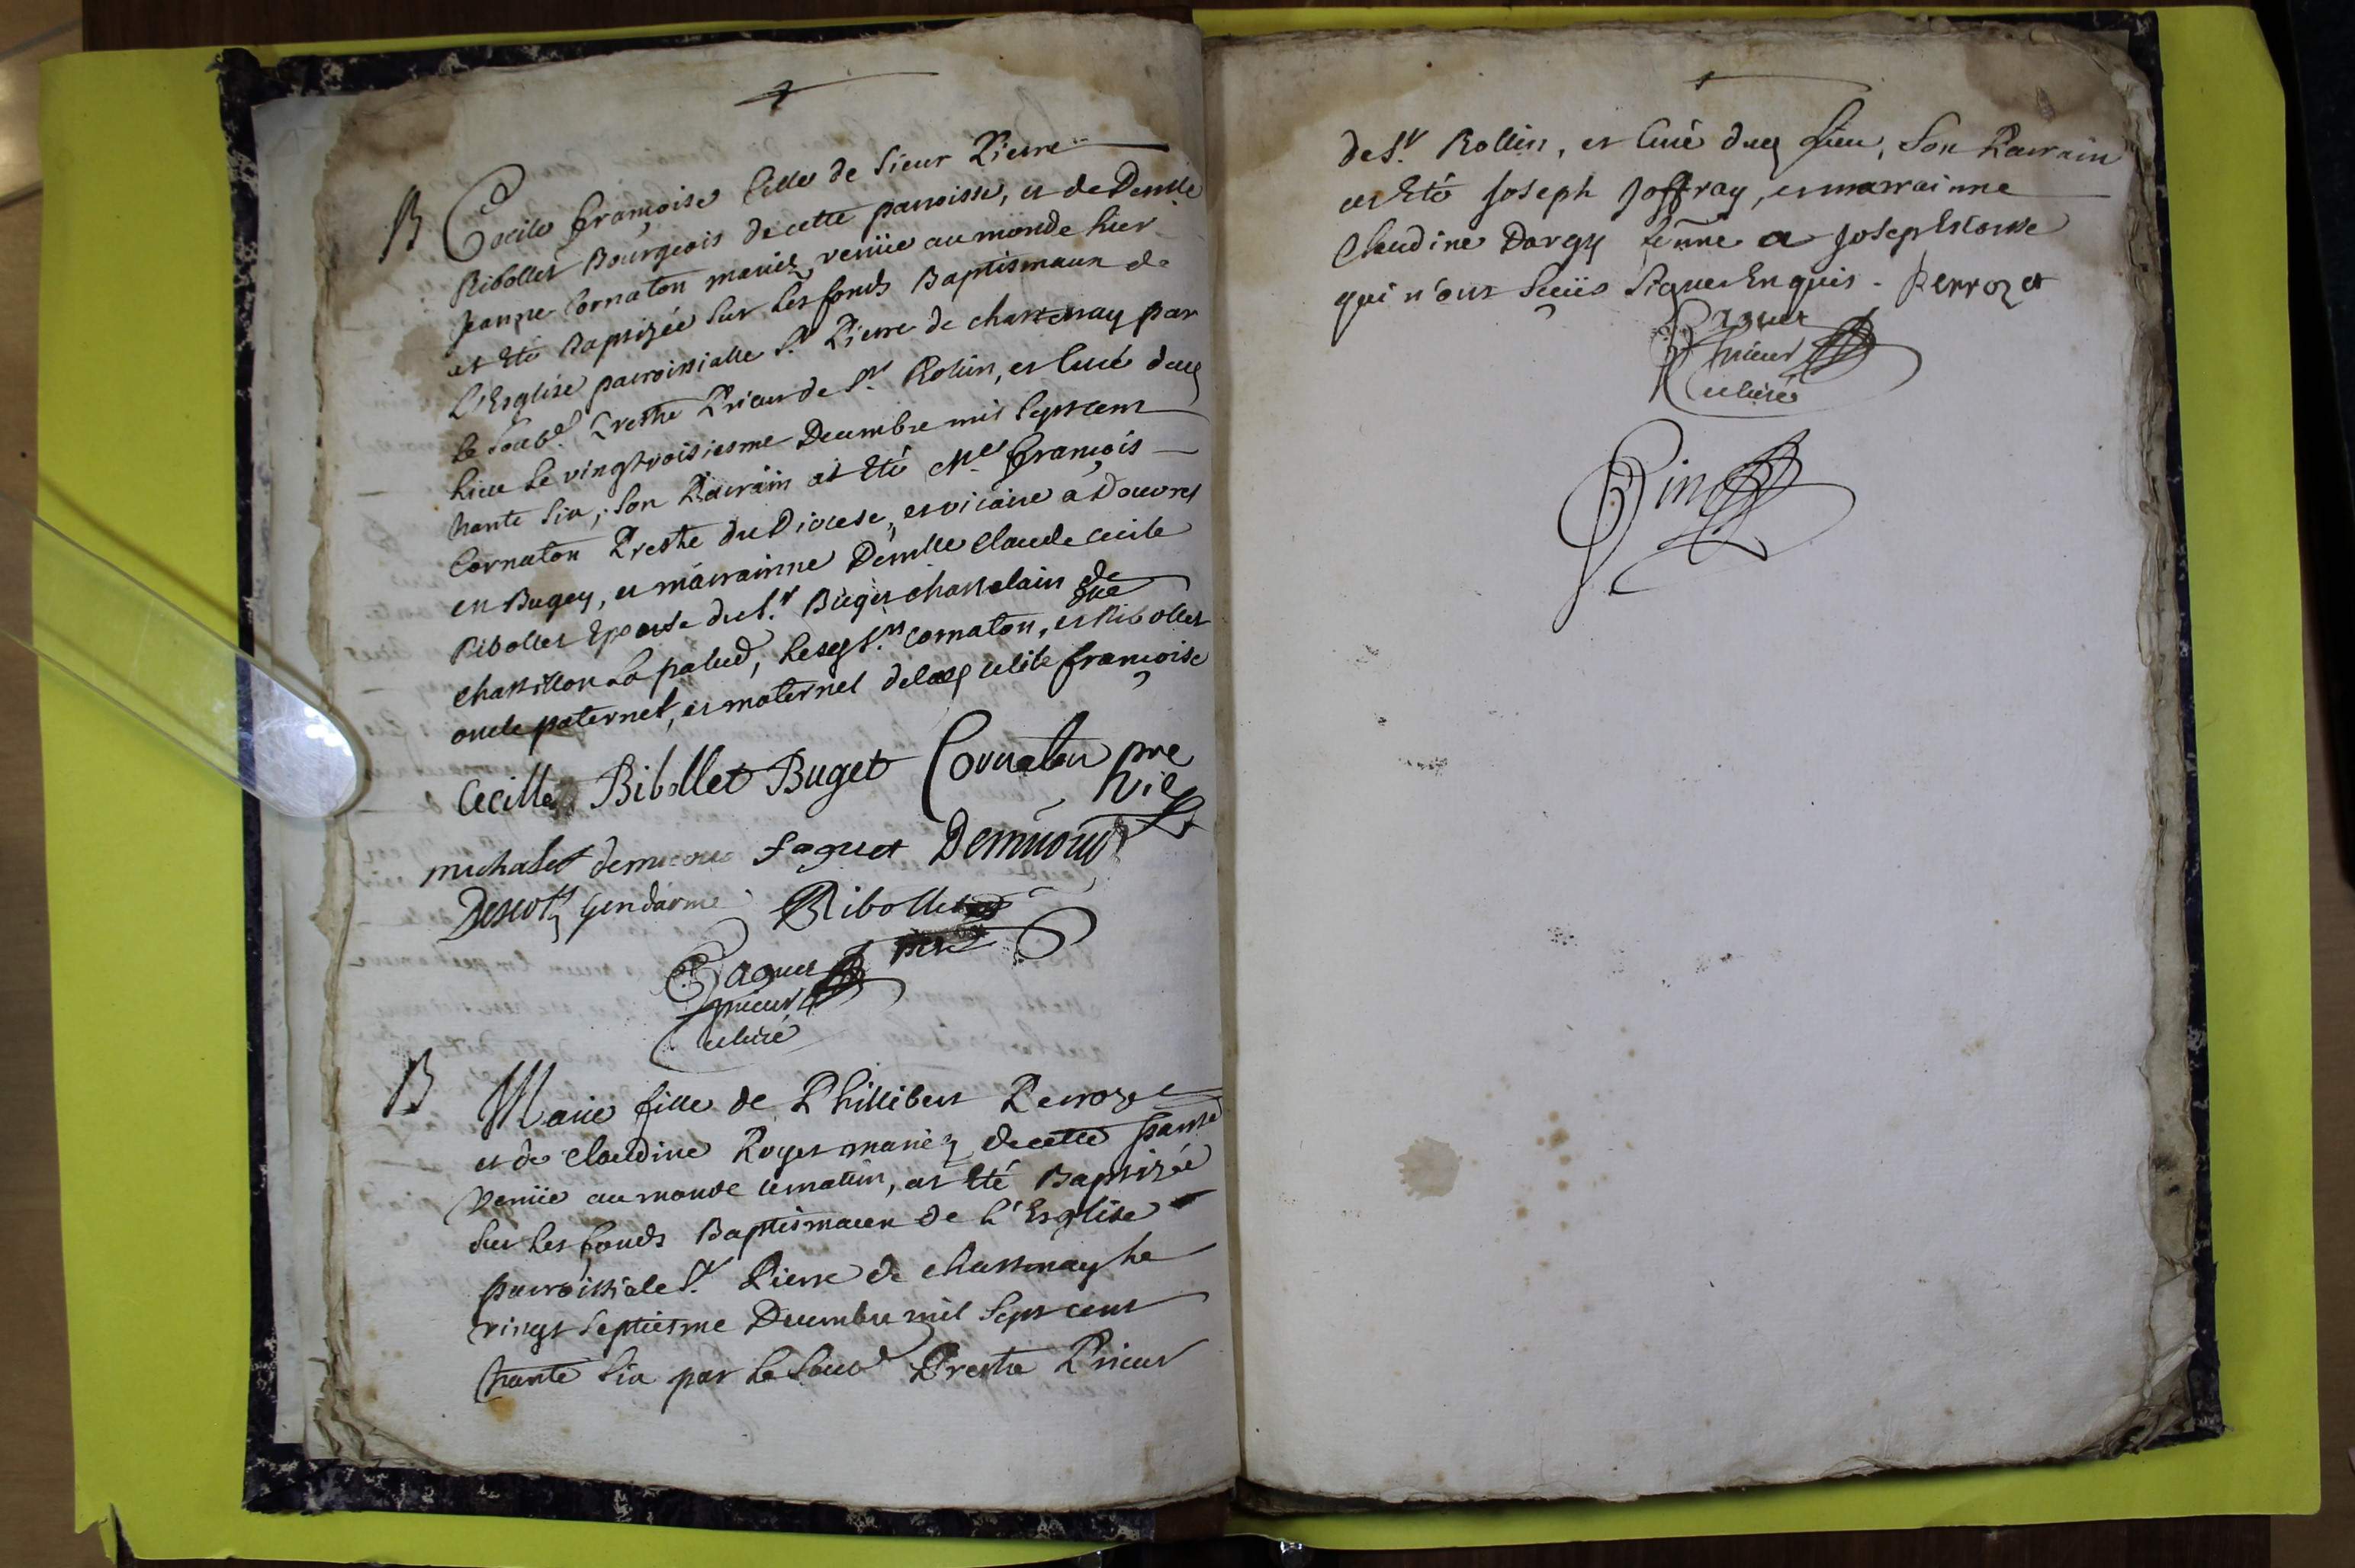 B Cecile françoise fille de Sieur Pierre
Ribollet Bourgeois de cette parroisse, et de Demlle
Jeanne Cornaton mariez, venüe au monde hier
at Eté Baptizée sur les fonds Baptismaux de
L'Esglise parroissialle St Pierre de chastenay par
le soubd. Prestre Prieur de St Rollin, et Curé dud
Lieu le vingtroisiesme Decembre mil sept cent
trante six, son Parrain at Eté Mre françois
Cornaton Prestre du Diocese, et vicaire a Douvres
en Bugey, et marrainne Demlle Claude cecile
Ribollet Epouse du Sr Buget chastelain de
chastillon La palud, lesd Srs Cornaton, et Ribollet
oncle paternel, et maternel de lad cecile françoise
Cecille Ribollet Buget Cornaton pre
vic
michalet faguet Demmoud
gendarme Ribollet
pere
Faguet
prieur
curé
B Marie fille de Phillibert Perrozet
et de Claudine Royet mariéz de cette parrse
venüe au monde ce matin, at Eté Baptizée
sur les fonds Baptismaux de L'Esglise
parroissiale St Pierre de chastenay le
vingt septiesme Decembre mil sept cent
trante six par le soubd Prestre Prieur
de St Rollin, et Curé dud Lieu, Son Parrain
at Eté Joseph Joffray, et marrainne
Claudine Dargy femme a Joseph
qui n'ont sceüs signer Enquis. Perrozet
Faguet
prieur
curé
Fin